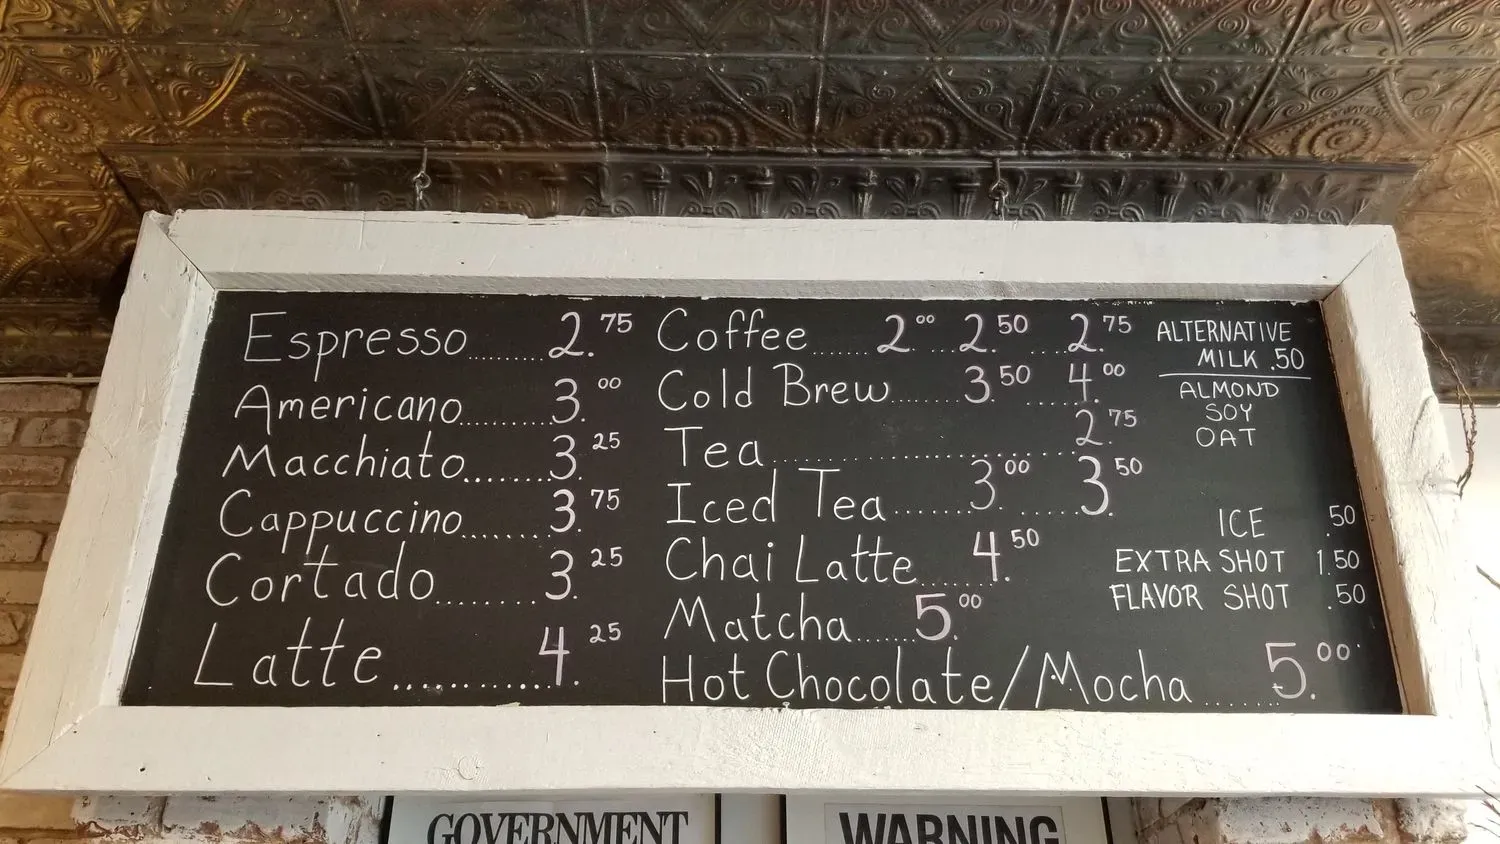 Espresso........2.75
Americano..........3.00
Macchiato........3.25
Cappuccino........3.75
Cortado..........3.25
Latte............4.25
Coffee......2.00...2.50....2.75
Cold Brew.......3.50....4.00
Tea..............................2.75
Iced Tea......3.00......3.50
Chai Latte......4.50
Matcha......5.00
Hot Chocolate/Mocha.......5.00
ALTERNATIVE
MILK .50
ALMOND
SOY
OAT
ICE .50
EXTRA SHOT 1.50
FLAVOR SHOT .50
GOVERNMENT
WARNING